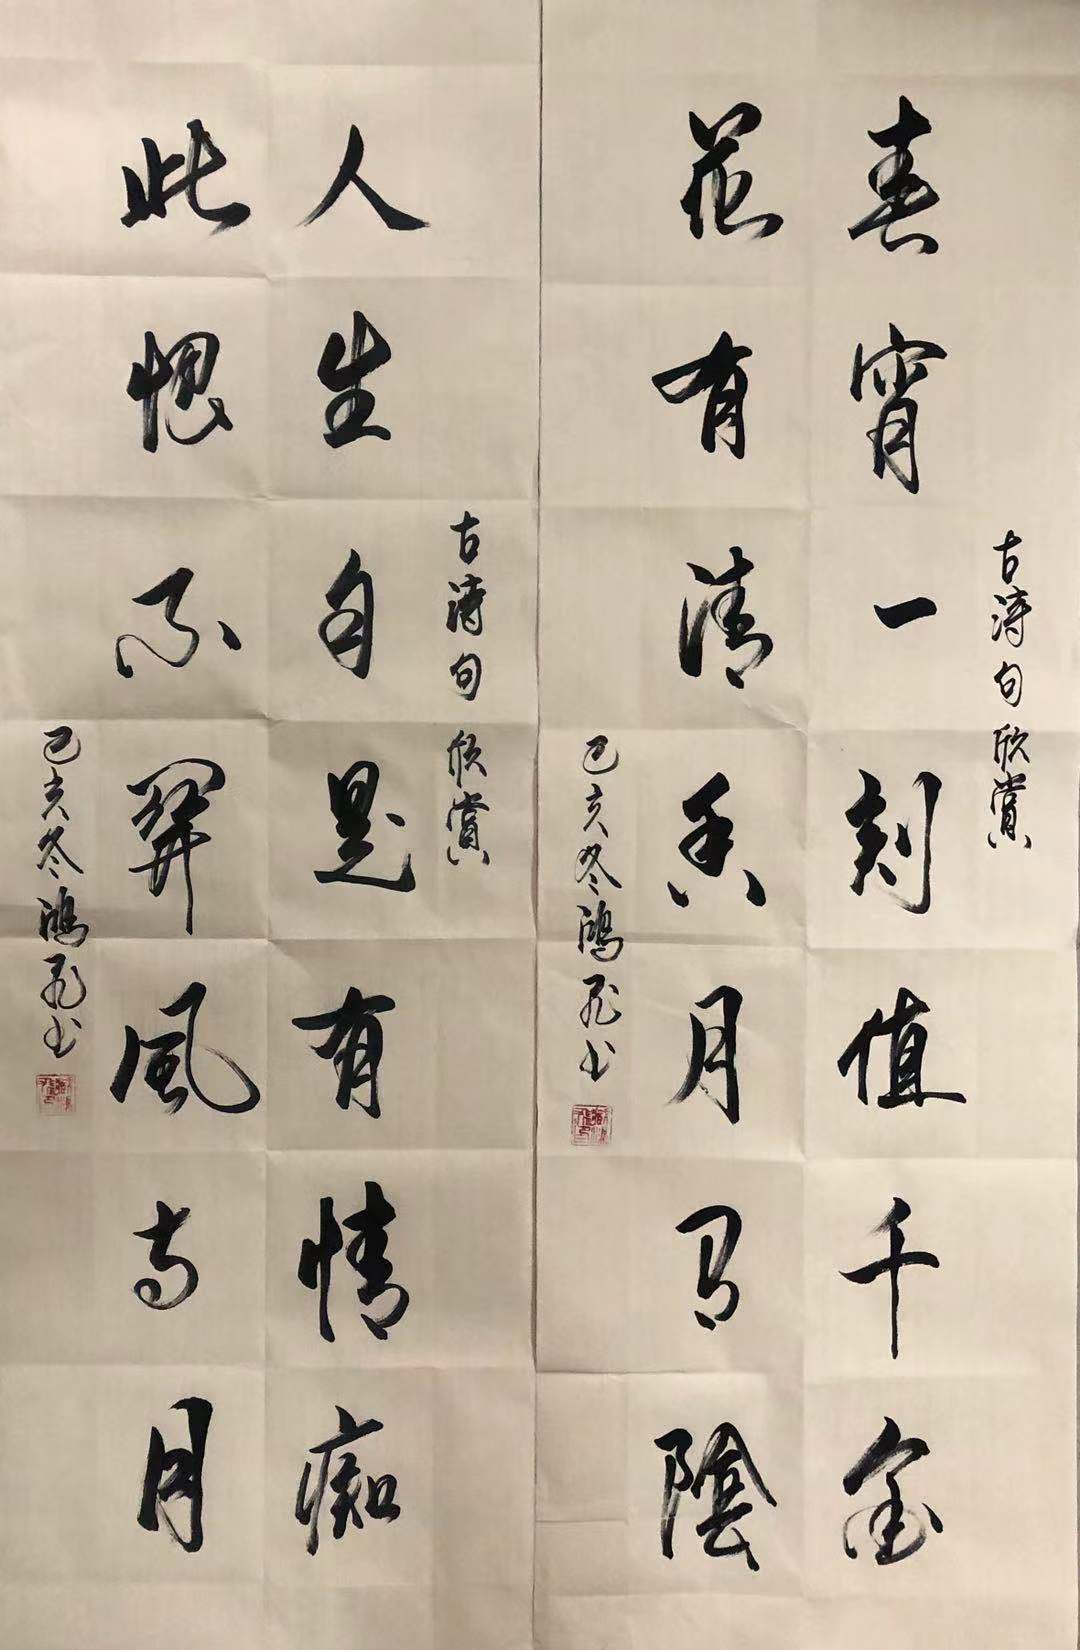 古诗句欣賞
春宵一刻值千金
花有清香月有陰
己亥冬鴻飛书
古诗句欣賞
人生自是有情痴
此恨不關風与月
己亥冬鴻飛书